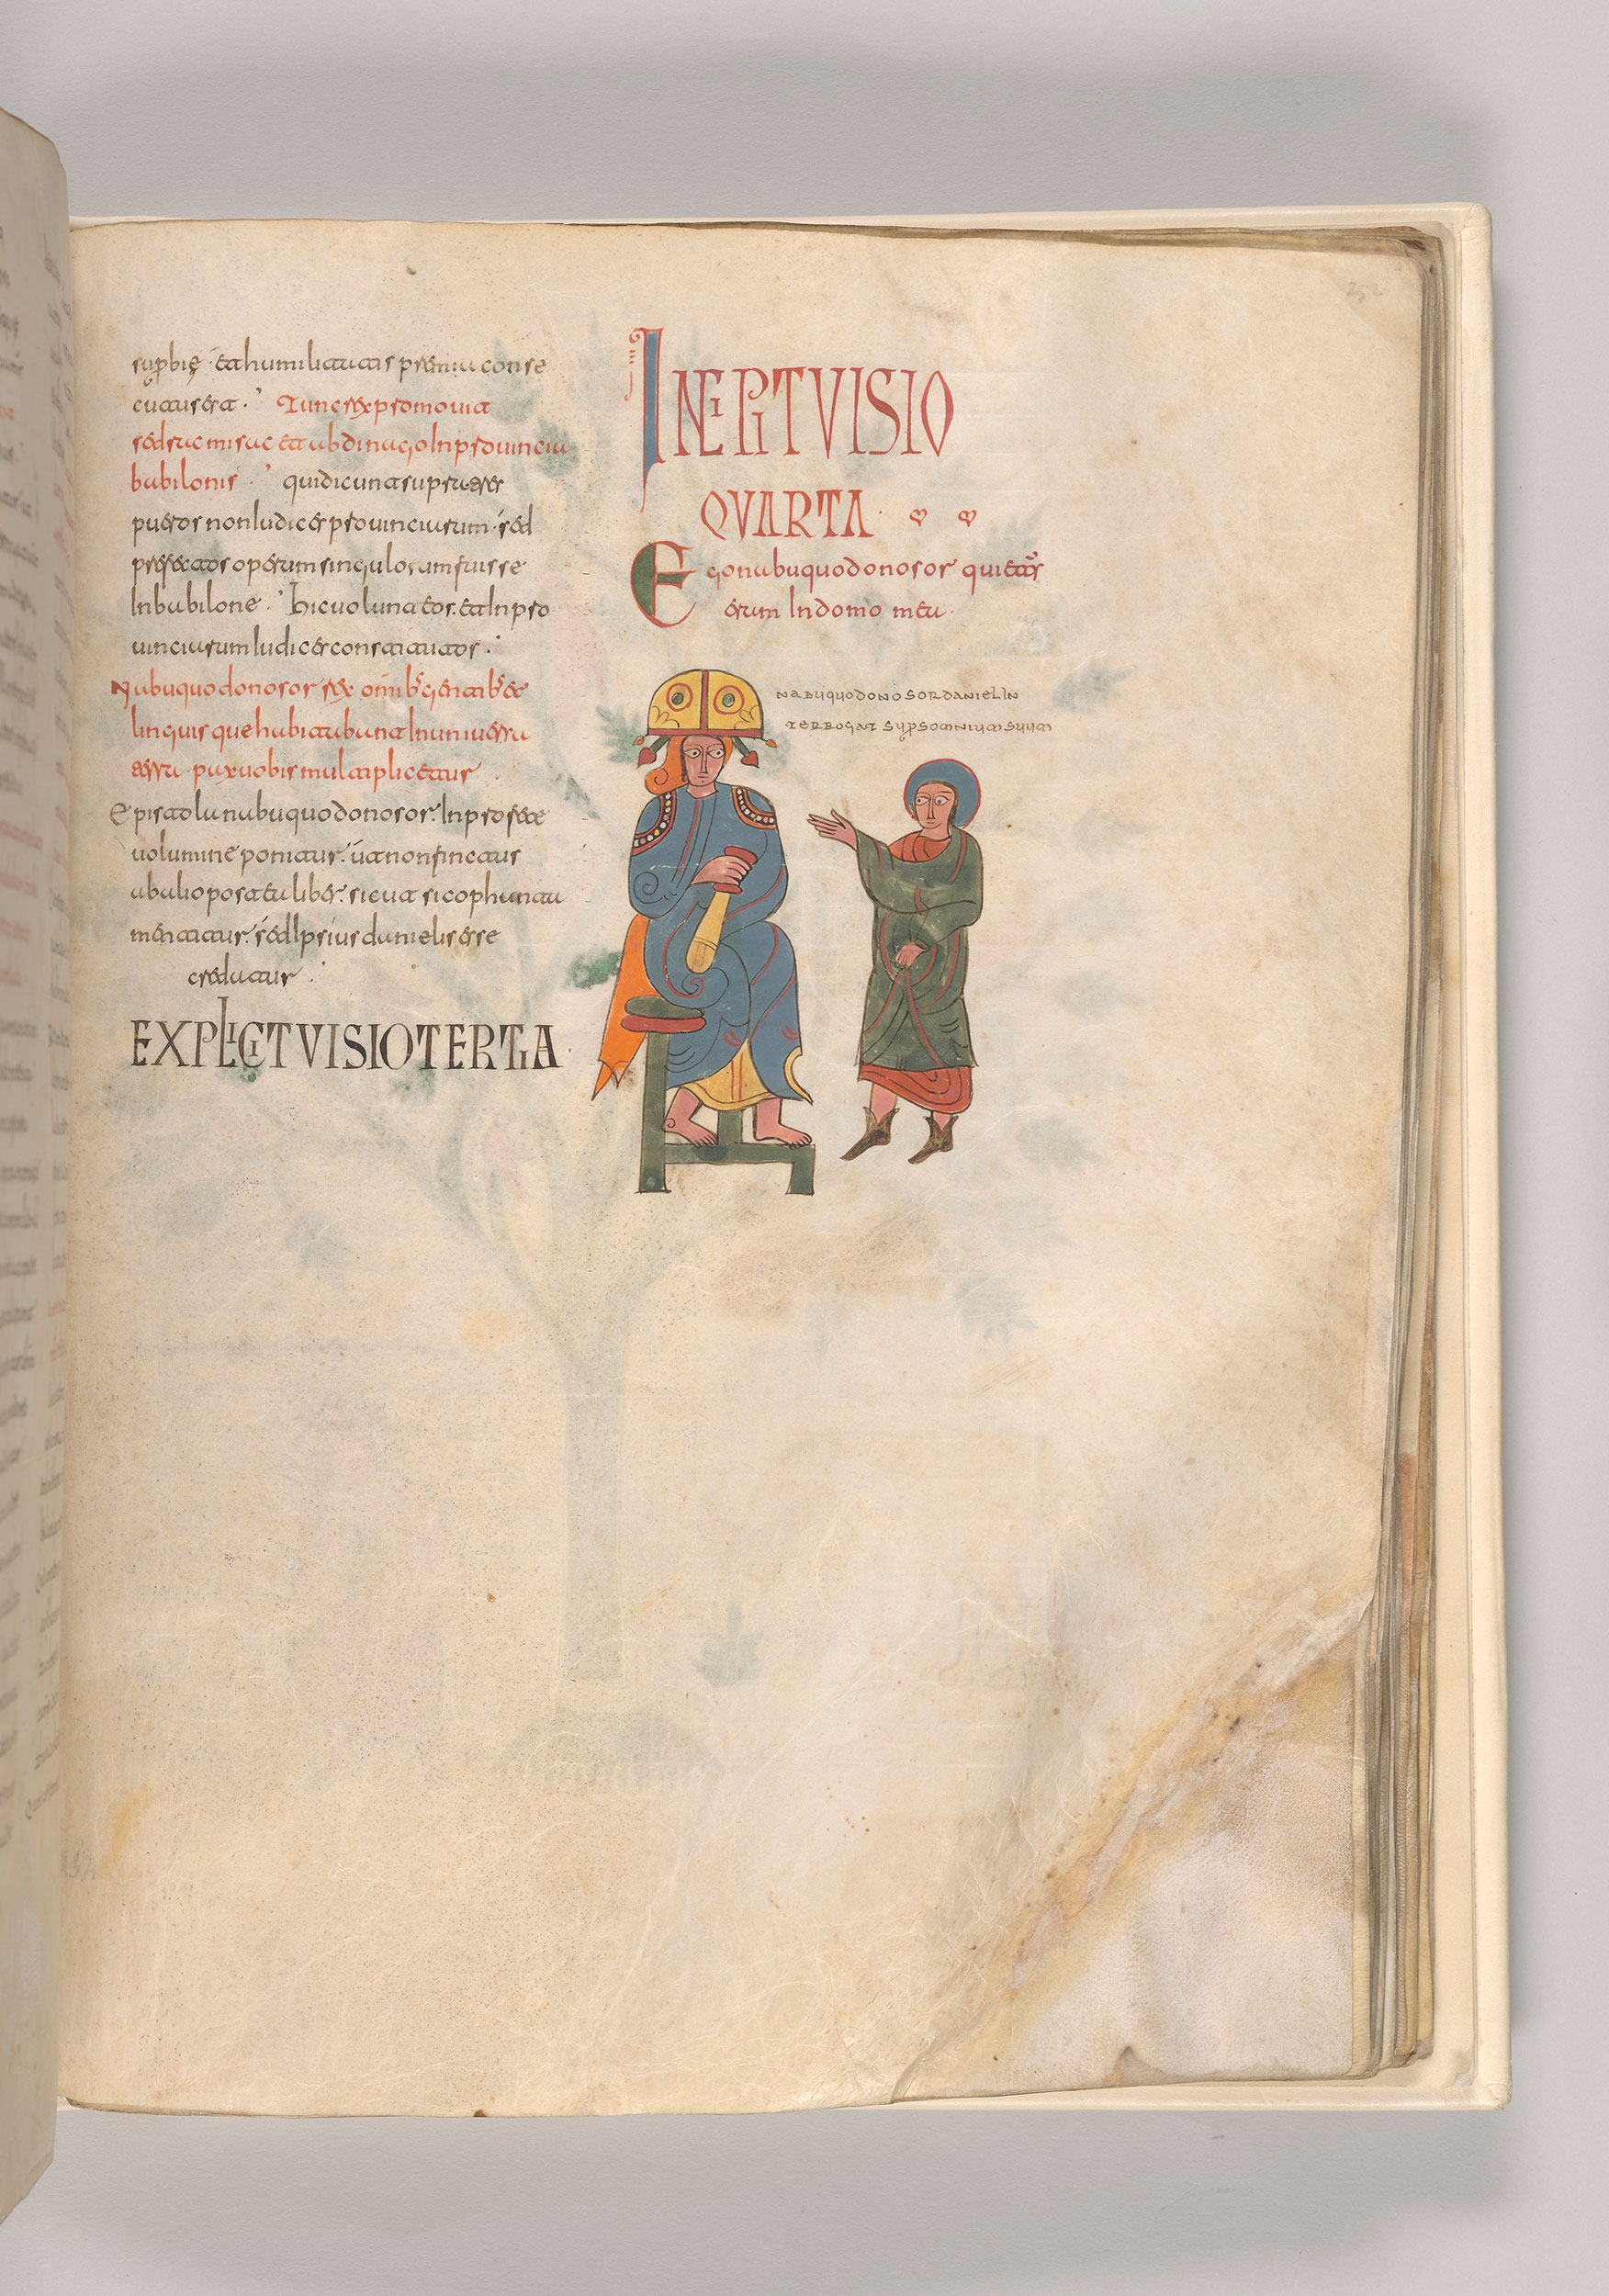 suprbię · et humilitatis premia conse
cuta sera · Tunc rex promovit
sedrac misac et abdinago In provincia
babilonis · qui dicunt supra tres
pueros non Iudices provinciarum · sed
prefectos operum singulorum fuisse
In babilone · hic volunt eos · et In pro
vinciarum Iudices constitutos ·
Nabuquodonosor rex omibs gentibs et
linguis que habitabunt In universa
terra · pax vobis multiplicetur
Epistola nabuquodonosor · In profete
volumine ponitur · ut non fingatur
ab alio postea liber · sicut sicophanta
mentitur · sed Ipsius danielis esse
credatur ·
EXPLICIT VISIO TERTIA ·
INCIPIT VISIO
QVARTA ·
Ego nabuquodonosor quietus
eram In domo mea ·
NABUQUODONOSOR DANIEL IN
TERROGAT SUPSOMNIUM SUUM
252